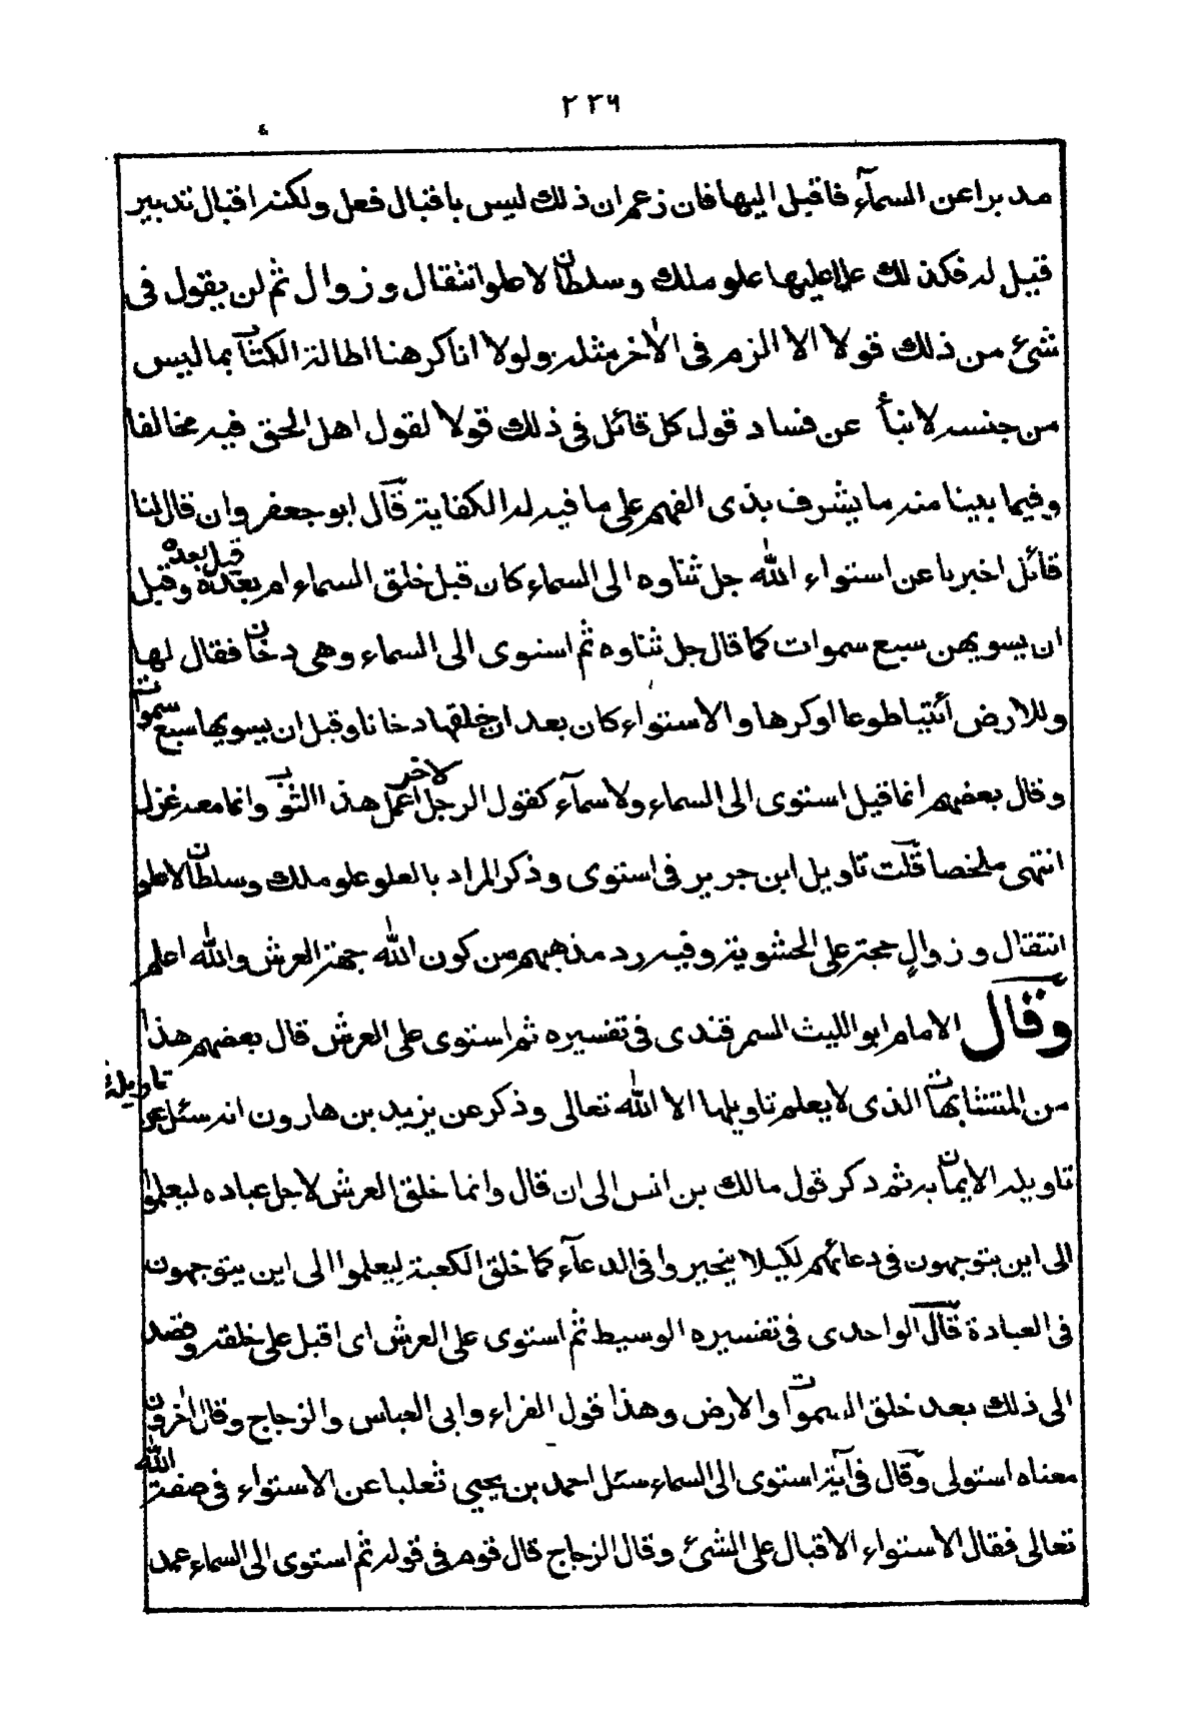 ٢٢٦
مدبرا عن السمآء فاقبل اليها فان زعم ان ذلك ليس باقبال فعل ولكنه اقبال تدبير
قيل له فكذلك علا عليها علو ملك وسلطان لا علو انتقال و زوال ثم لن يقول فى
شئ من ذلك قولا الا الزم فى الاٰخر مثله ولولا انا كرهنا اطالة الكتاب بما ليس
من جنسه لانبأ عن فساد قول كل قائل فى ذلك قولا لقول اهل الحق فيه مخالفا
وفيما بينا منه ما يشرف بذى الفهم على ما فيه له الكفاية قال ابو جعفر وان قال لنا
قائل اخبرنا عن استواء الله جل ثناوه الى السماء كان قبل خلق السماء ام بعده قيل بعده وقبل
ان يسويهن سبع سموات كما قال جل ثناوه ثم استوى الى السماء وهى دخان فقال لها
وللارض ائتيا طوعا او كرها والاستواء كان بعد ان خلقها دخانا وقبل ان يسويها سبع سموات
وقال بعضهم انما قيل استوى الى السماء ولا سمآء كقول الرجل لاخر اعمل هذا الثوب وانما معه غزل
انتهى ملخصا قلت تاويل ابن جرير فى استوى وذكر المراد بالعلو علو ملك وسلطان لا علو
انتقال و زوالٍ حجة على الحشوية وفيه رد مذهبهم من كون الله جهة العرش والله اعلم
وقال الامام ابو الليث السمرقندى فى تفسيره ثم استوى على العرش قال بعضهم هذا
من المتشابهات الذى لا يعلم تاويلها الا الله تعالى وذكر عن يزيد بن هارون انه سئل عن تاويله
تاويله الايمان به ثم ذكر قول مالك بن انس الى ان قال وانما خلق العرش لاجل عباده ليعلموا
الى اين يتوجهون فى دعائهم لكيلا يتحيروا فى الدعآء كما خلق الكعبة ليعلموا الى اين يتوجهون
فى العبادة قال الواحدى فى تفسيره الوسيط ثم استوى على العرش اى اقبل على خلقه وقصد
الى ذلك بعد خلق السموات والارض وهذا قول الفراء وابى العباس والزجاج وقال اٰخرون
معناه استولى وقال فى آية استوى الى السماء سئل احمد بن يحيى ثعلبا عن الاستواء فى صفة الله
تعالى فقال الاستواء الاقبال على الشئ وقال الزجاج قال قوم فى قوله ثم استوى الى السماء عمد